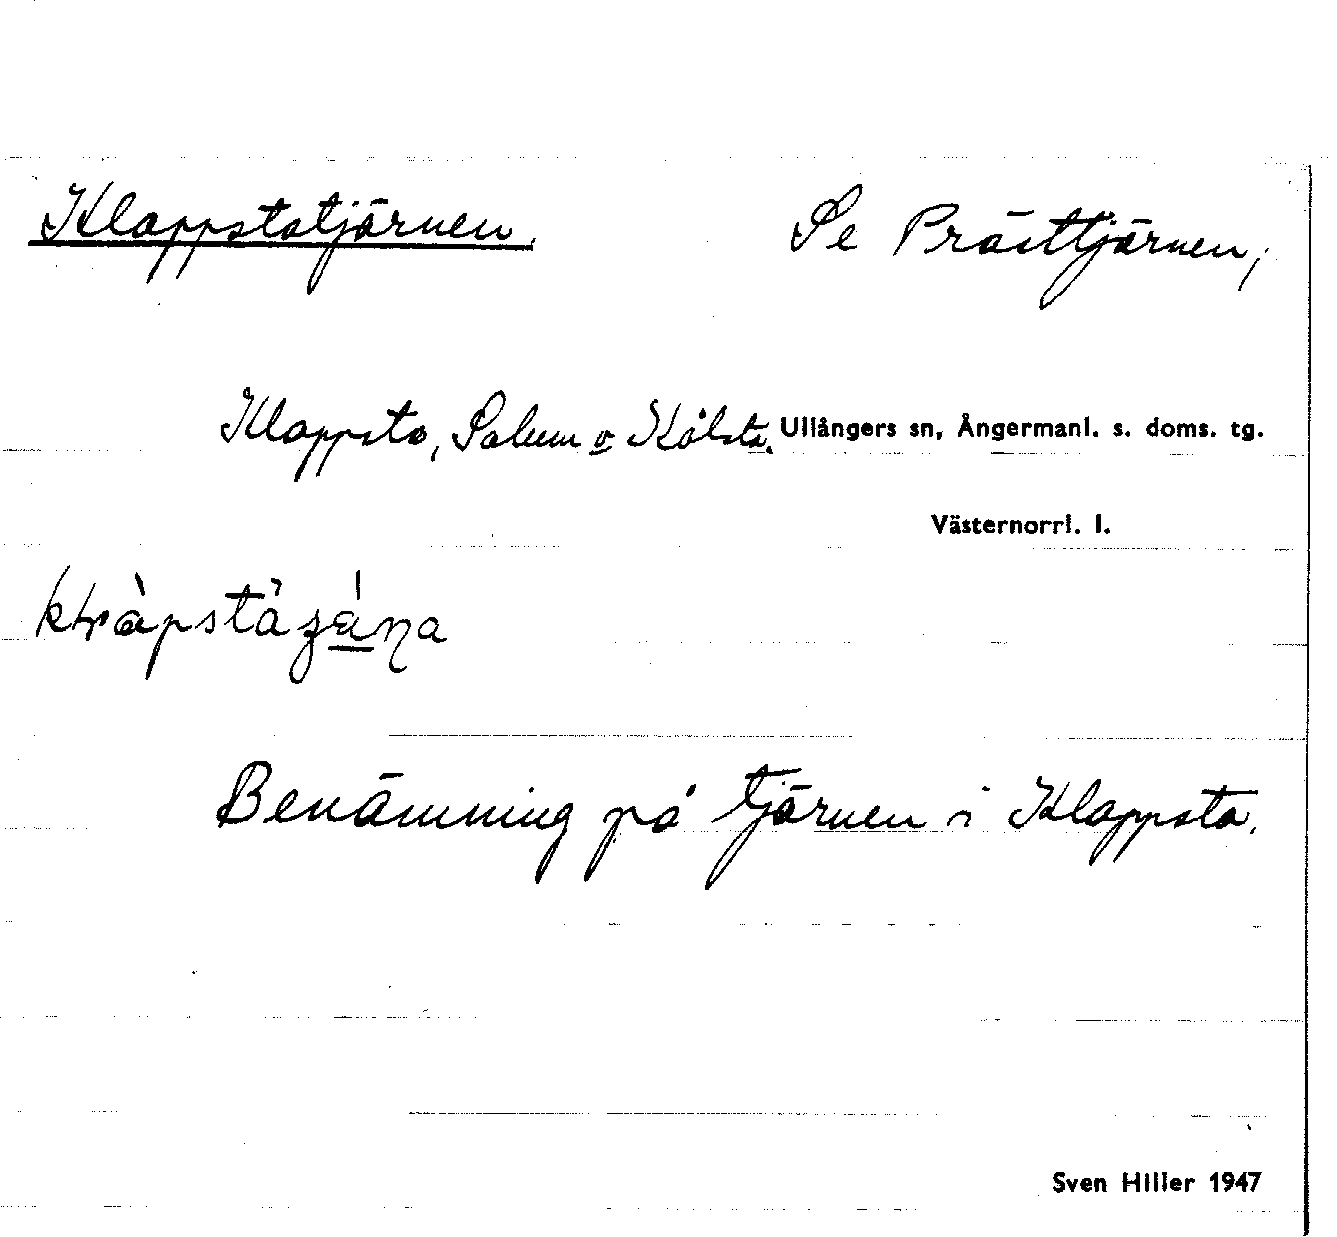 Klappstatjärnen. Se Prästtjärnen,
Klappsta, Salum o Kålsta, Ullångers sn, Ångermanl. s. doms. tg.
Västernorrl. l.
Benämning på tjärnen i Klappsta.
Sven Hiller 1947